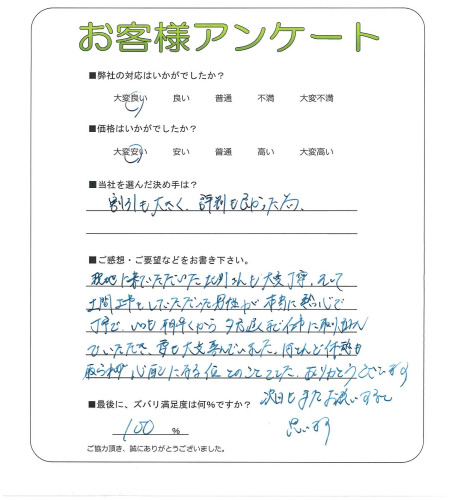 お客様アンケート
■弊社の対応はいかがでしたか？
大変良い 良い 普通 不満 大変不満
■価格はいかがでしたか？
大変安い 安い 普通 高い 大変高い
■当社を選んだ決め手は？
割引も大きく、評判も良かった為、
■ご感想・ご要望などをお書き下さい。
現地に来ていただいた も大変丁寧、そして
土間工事をしていただいた男性が本当に熱心で
丁寧で、いつも朝早くから夕方遅くまで仕事に取り組んで
いただき、妻も大変 いました。ほとんど休憩も
取られず心配になる位とのことでした。ありがとうございます
次回もまたお願いすると
思います
■最後に、ズバリ満足度は何%ですか？
100 %
ご協力頂き、誠にありがとうございました。